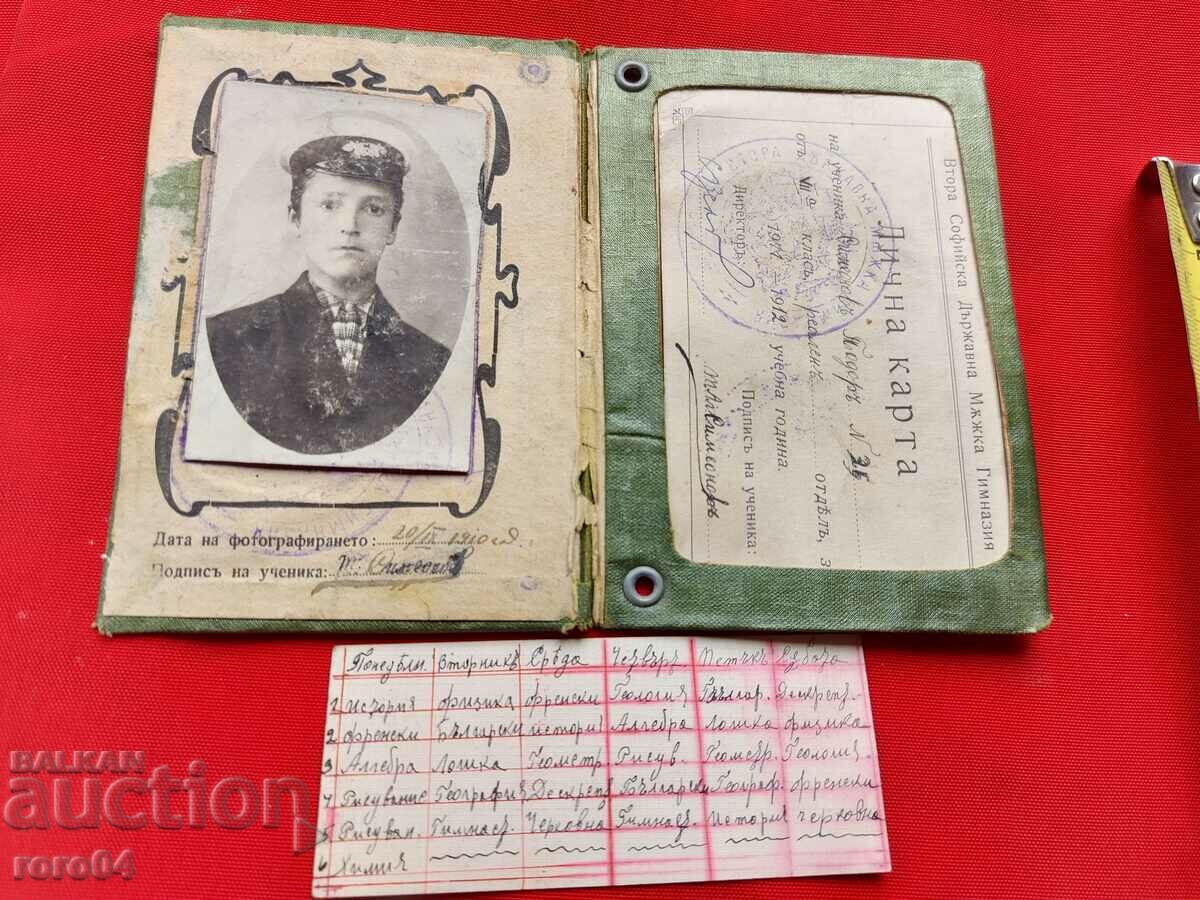 Дата на фотографирането: 20/IX 1910 год.
Подписъ на ученика: Т. Симеоновъ
Втора Софийска Държавна Мѫжка Гимназия
Лична карта
на ученика Симеоновъ Тодоръ N 26
отъ VIII а класъ, реаленъ отдѣлъ, з
1911 – 1912 учебна година.
Директоръ: Подписъ на ученика:
Понедѣлн. Вторникъ Срѣда Четвър. Петъкъ Сѫбота
1 История Физика Френски Геология Българ. Дескрепт.
2 Френски Български Истори Алгебра Логика Физика
3 Алгебра Логика Геометр. Рисув. Геометр. Геология.
4 Рисувание География Дескрепт Български Географ. Френски
5 Рисуван. Гимнаст. Черковна Гимнаст. История Черковна
6 Химия
BALKAN
auction
roro04